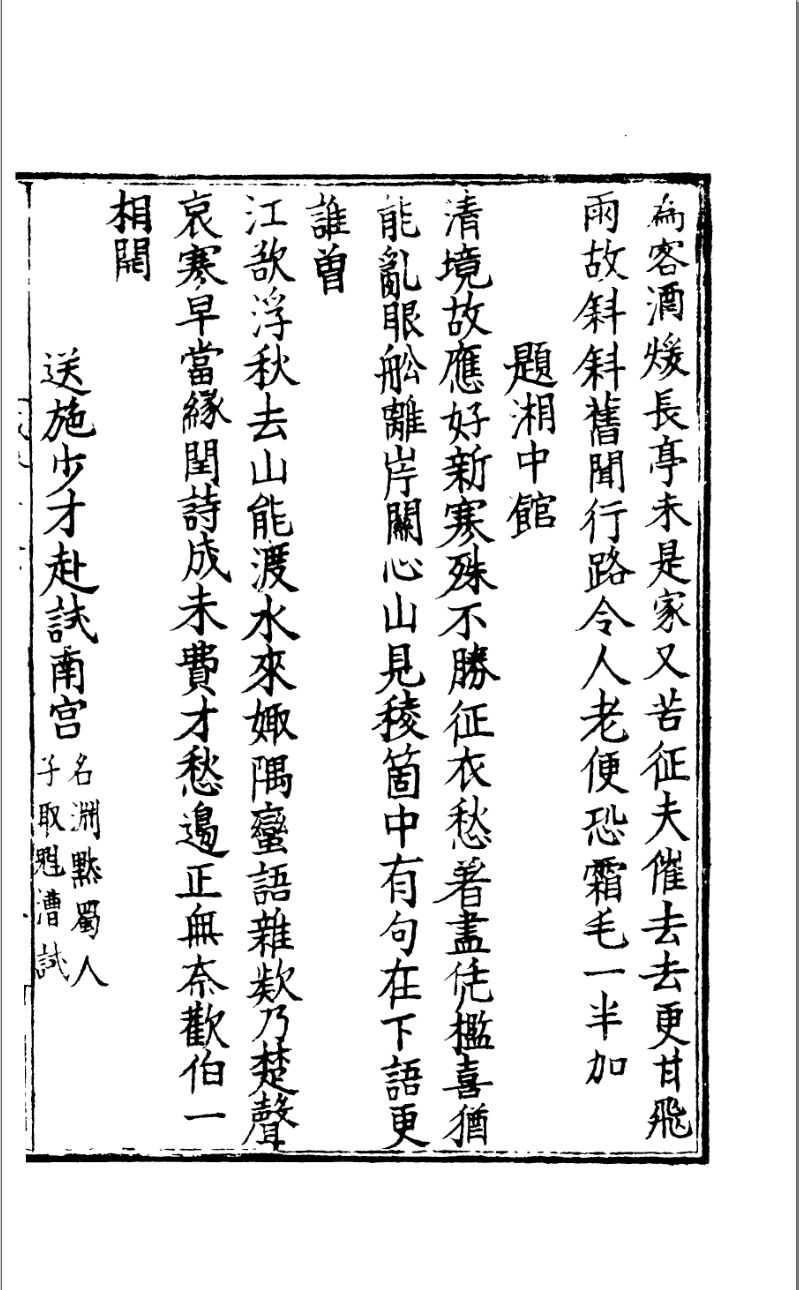 為客酒煖長亭未是家又苦征夫催去去更甘飛
雨故斜斜舊聞行路令人老便恐霜毛一半加
題湘中館
清境故應好新寒殊不勝征衣愁著盡凭檻喜猶
能亂眼舩離岸關心山見稜箇中有句在下語更
誰曽
江欲浮秋去山能渡水來娵隅蠻語雜欸乃楚聲
哀寒早當緣閏詩成未費才愁邊正無奈歡伯一
相開
送施少才赴試南宫
名淵黙蜀人
子取魁漕試